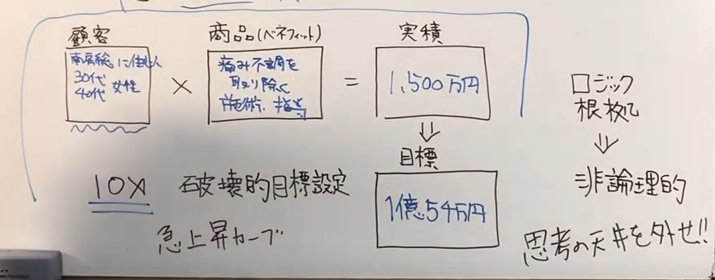 顧客
南房総に住む人
30代
40代 女性
×
商品(ベネフィット)
痛み不調を
取り除く
施術、指導
=
実績
1,500万円
⇓
目標
1億54万円
10X
破壊的目標設定
急上昇カーブ
ロジック
根拠
⇓
非論理的
思考の天井を外せ!!